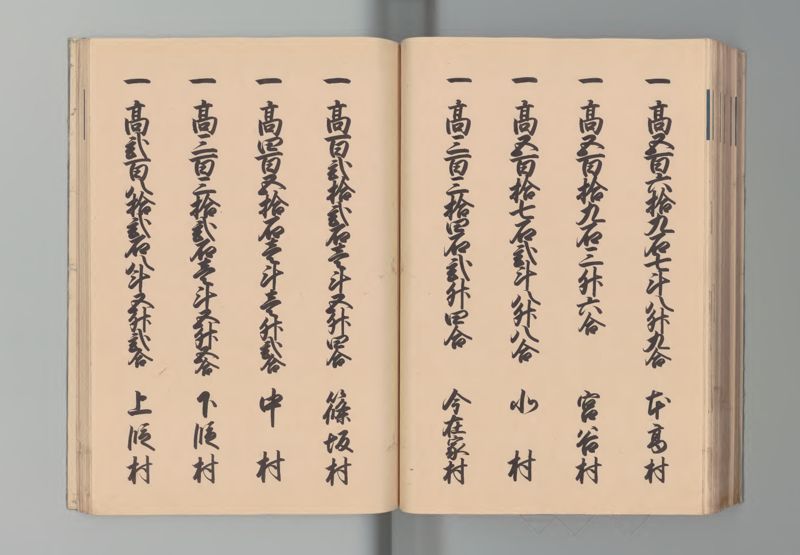 一 高五百六拾九石七斗八升九合 本高村
一 高五百拾九石三升六合 宮谷村
一 高五百拾七石弐斗八升八合 北村
一 高三百三拾四石弐升四合 今在家村
一 高百弐拾弐石壱斗五升四合 篠坂村
一 高四百五拾石壱斗壱升弐合 中村
一 高三百三拾弐石壱斗五升五合 下段村
一 高弐百八拾弐石八斗五升弐合 上段村